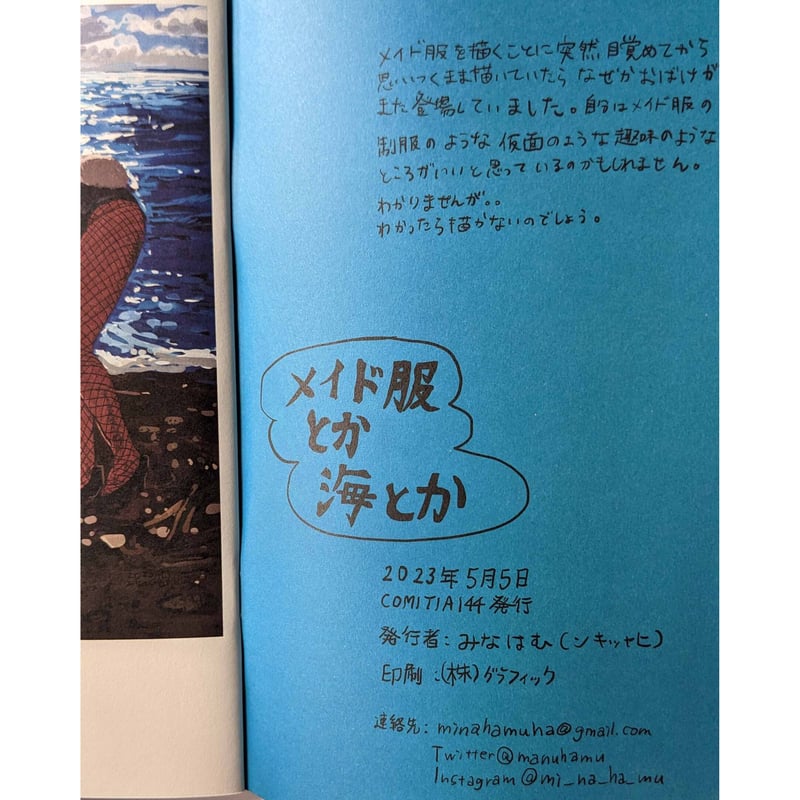 メイド服を描くことに突然目覚めてから
思いつくまま描いていたらなぜかおばけが
また登場していました。自分はメイド服の
制服のような仮面のような趣味のような
ところがいいと思っているのかもしれません。
わかりませんが。。
わかったら描かないのでしょう。
メイド服
とか
海とか
2023年5月5日
COMITIA144発行
発行者:みなはむ(ンキッャヒ)
印刷:(株)グラフィック
連絡先:minahamuha@gmail.com
Twitter@manuhamu
Instagram@mi_na_ha_mu